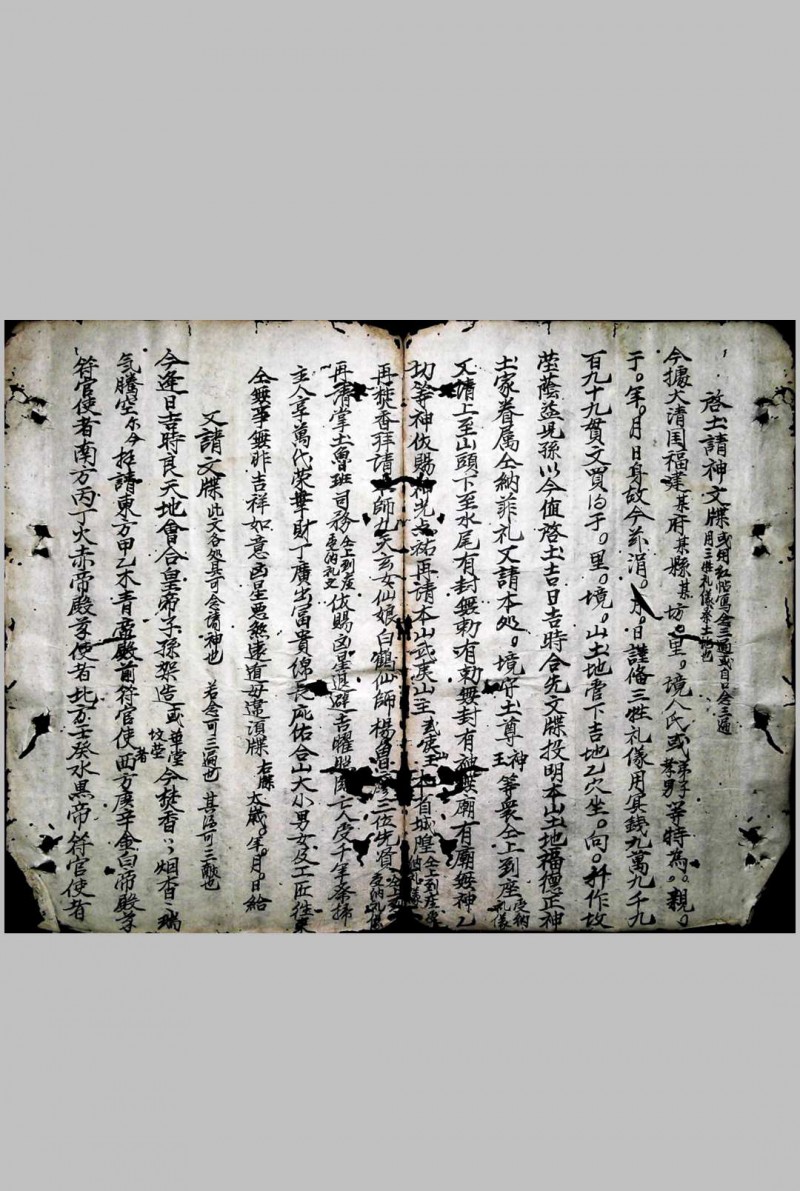 啓土請神文牒 或用紅帖寫念三遍或自己念三遍
月三牲礼儀祭土地也
今據大清囯福建某府某縣某坊。里。境人氏或弟子孝男等特為。。親。
于。年。月日身故今茲涓。月。日謹俻三牲礼儀用㝠銭九萬九千九
百九十九貫文買的于。里。境。山土地管下吉地乙穴坐。向。幵作坟
塋蔭益児孫以今值啓土吉日吉時合先文牒投明本山土地福德正神
土家眷属仝納菲礼又請本処。境守土尊神王等衆仝上到座受納礼儀
又請上至山頭下至水尾有封無勅有勅無封有神無廟有廟無神乙
切等神伏賜神光点祐再請本山武夷山主武夷王 省城隍仝上到座受納礼儀
再焚香拜請 師九天玄女仙娘白鶴仙師楊曾 三位先賢
再請掌土魯班司務仝上到座受納礼文伏賜凶星退避吉曜照 亡人受千年祭掃
主人享萬代荣華財丁廣出冨貴绵長庇佑合山大小男女及工匠往来
仝無事無非吉祥如意凶星悪煞速道毋違湏牒 右牒 太歳。年。月。日給
又請文牒 此文各処具可念請神也 若念可三遍也 其法可三敲也
今逢日吉時良天地會合皇帝子孫架造或華堂坟塋者今焚香〻烟香〻瑞
気騰空尓今招請東方甲乙木青帝殿前符官使西方庚辛金白帝殿孝
符官使者南方丙丁火赤帝殿孝使者北方壬癸水黒帝 符官使者